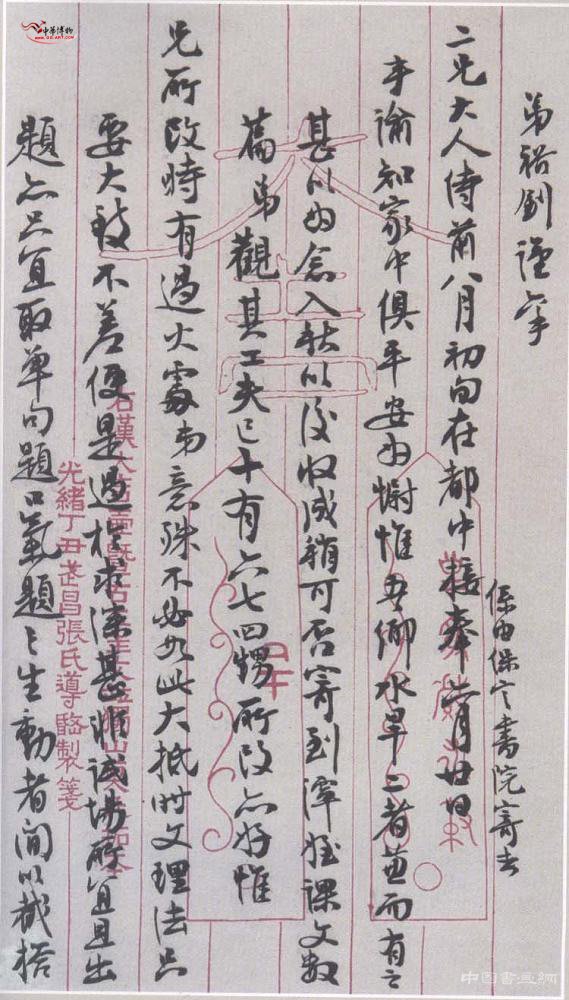 弟裕釗謹肅
二兄大人侍前八月初旬在都中接奉六月廿日
係由保定書院寄去
手諭知家中俱平安為慰惟吾鄉水旱二者並而有之
甚以為念入秋以後收成稍可否寄到澤姪課文數
篇弟觀其工夫已十有六七四甥所改亦好惟
兄所改時有過火處弟意殊不必如此大抵時文理法只
要大致不差便是過於求深甚非試場所宜且出
題亦只宜取單句題口氣題之生動者間以截搭
光緒丁丑武昌張氏導𧮾製箋
中华博物
中国书画网